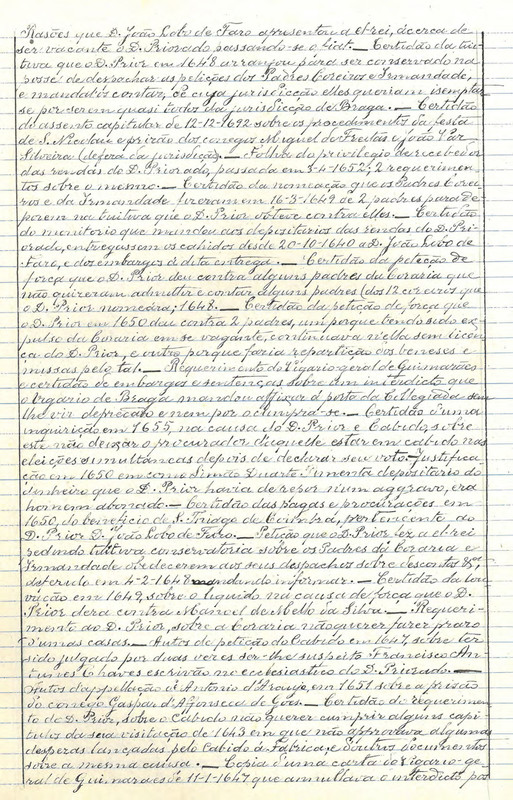 Rasões que D. João Lobo de Faro apresentou a el-rei, ácerca de
ser vacante o D. Priorado passando-se o Gral. — Certidão da tui-
tiva que o D. Prior em 1648 arranjou para ser conservado na
posse de despachar as petições dos Padres Coreiros e Irmandade,
e mandal-os contar, de cuja jurisdicção elles queriam isemptar-
se por serem quasi todos da jurisdicção de Braga. — Certidão
do assento capitular de 12-12-1692 sobre os procedimentos da festa
de S. Nicolau e prisão dos conegos Miguel de Freitas e João Vaz
Silveira (defesa da jurisdição). — Folha do privilegio de recebedor
das rendas do D. Priorado, passada em 3-4-1652; 2 requerimen-
tos sobre o mesmo. — Certidão da nomeação que os Padres Corei-
ros e da Irmandade fizeram em 16-3-1649 de 2 padres para de-
porem na tuitiva que o D. Prior obteve contra elles. — Certidão
do monitorio que mandou aos depositarios das rendas do D. Pri-
orado, entregassem os cahidos desde 20-10-1640 a D. João Lobo de
Faro, e dos embargos á dita entrega. — Certidão da petição de
força que o D. Prior deu contra alguns padres da Coraria que
não quizeram admittir e contar alguns padres (dos 12 coreiros que
o D. Prior nomeára; 1648. — Certidão da petição de força que
o D. Prior em 1650 deu contra 2 padres, um porque tendo sido ex-
pulso da Coraria em se vagante, continuava n'ella sem licen-
ça do D. Prior, e outro porque fazia repartição dos beneses e
missas pelo tal. — Requerimento do Vigario geral de Guimarães
e certidão de embargos e sentenças sobre um interdicto que
o Vigario de Braga mandou affixar á porta da Collegiada sem
lhe vir deprecado e nem por o cumpra-se. — Certidão d'uma
inquirição em 1655, na causa do D. Prior e Cabido, sobre
este não deixar o procurador d'aquelle estar em cabido nas
eleições simultaneas depois de declarar seu voto. Justifica-
ção em 1650 em como Simão Duarte Pimenta depositario do
dinheiro que o D. Prior havia de repor n'um aggravo, era
homem abonado. — Certidão das pagas e procurações em
1650, do beneficio de S. Thiago de Coimbra, pertencente ao
D. Prior D. João Lobo de Faro. — Petição que o D. Prior fez a el-rei
pedindo tuitiva conservatoria sobre os Padres da Coraria e
Irmandade obedecerem aos seus despachos sobre descontos &ª,
deferido em 4-2-1648 mandando informar. — Certidão da lou-
vação em 1649, sobre o liquido na causa de força que o D.
Prior dera contra Manoel de Mello da Silva. — Requeri-
mento ao D. Prior, sobre a Coraria não querer fazer prazo
d'umas casas. — Autos de petição do Cabido em 1647, sobre ter
sido julgado por duas vezes ser-lhe suspeito Francisco An-
tunes Chaves escrivão no ecclesiastico do D. Priorado. —
Autos d'appellação d'Antonio d'Araujo, em 1651 sobre a prisão
do conego Gaspar d'Affonseca de Goes. — Certidão do requerimen-
to do D. Prior, sobre o Cabido não querer cumprir alguns capi-
tulos da sua visitação de 1643 em que não approvava algumas
despesas lançadas pelo Cabido á Fabrica, e d'outros documentos
sobre a mesma causa. — Copia d'uma carta do Vigario ge-
ral de Guimarães de 11-1-1647 que annullava o interdicto por